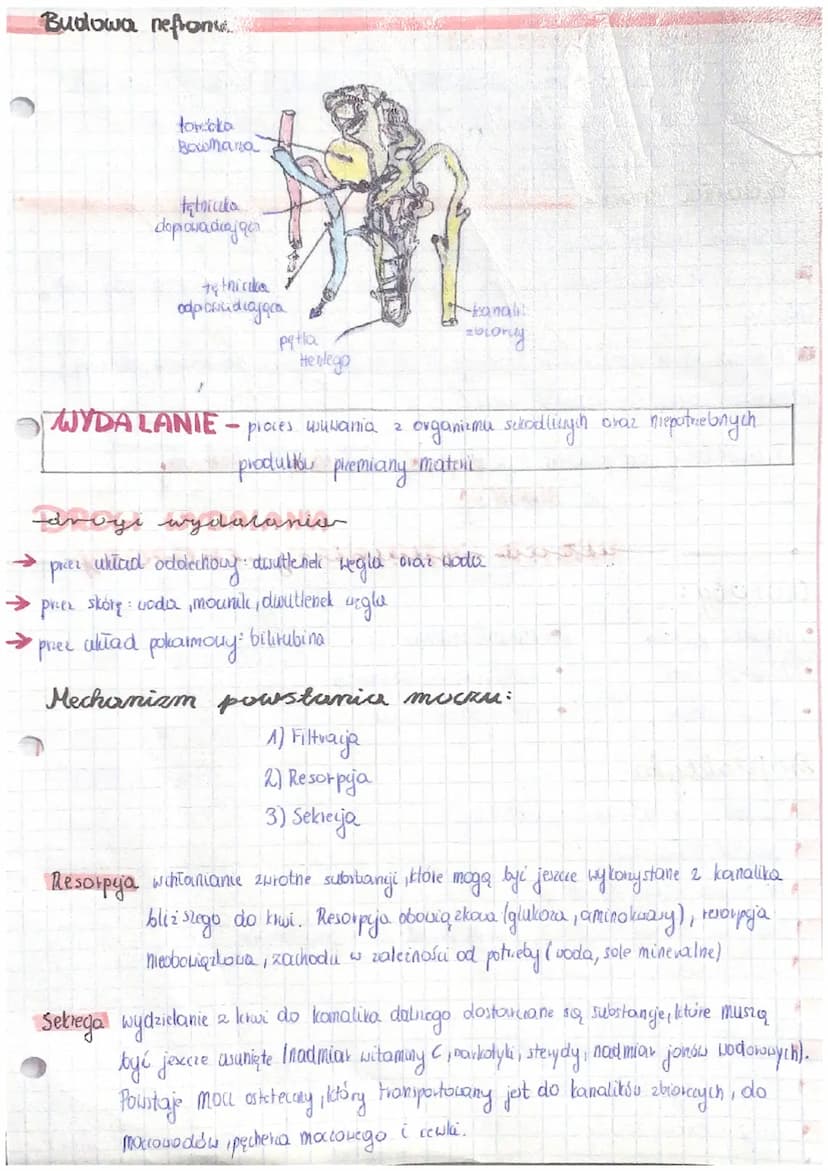 Budowa nefronu.
torebka
Bowmana
tętniczka
doprowadzająca
tętniczka
odprowadzająca
pętla
Henlego
kanalik
zbiorczy
WYDALANIE - proces usuwania z organizmu szkodliwych oraz niepotrzebnych
produktów przemiany materii
drogi wydalania
→ przez układ oddechowy: dwutlenek węgla oraz woda
→ przez skórę: woda, mocznik, dwutlenek węgla
→ przez układ pokarmowy: bilirubina
Mechanizm powstania moczu:
1) Filtracja
2) Resorpcja
3) Sekrecja
Resorpcja wchłanianie zwrotne substancji, które mogą być jeszcze wykorzystane z kanalika
bliższego do krwi. Resorpcja obowiązkowa (glukoza, aminokwasy), resorpcja
nieobowiązkowa, zachodzi w zależności od potrzeby (woda, sole mineralne)
Sekrecja wydzielanie z krwi do kanalika dalszego dostarczane są substancje, które muszą
być jeszcze usunięte (nadmiar witaminy C, narkotyki, sterydy, nadmiar jonów wodorowych).
Powstaje mocz ostateczny, który transportowany jest do kanalików zbiorczych, do
moczowodów, pęcherza moczowego i cewki.